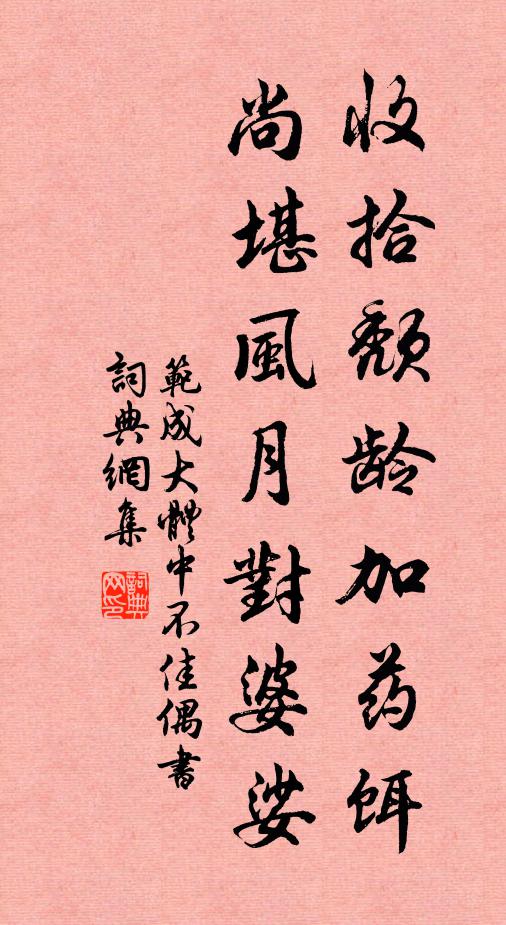 收拾頹龄加药餌
尚堪風月對婆娑
範成大體中不佳偶書
詞典網集
詞典网印